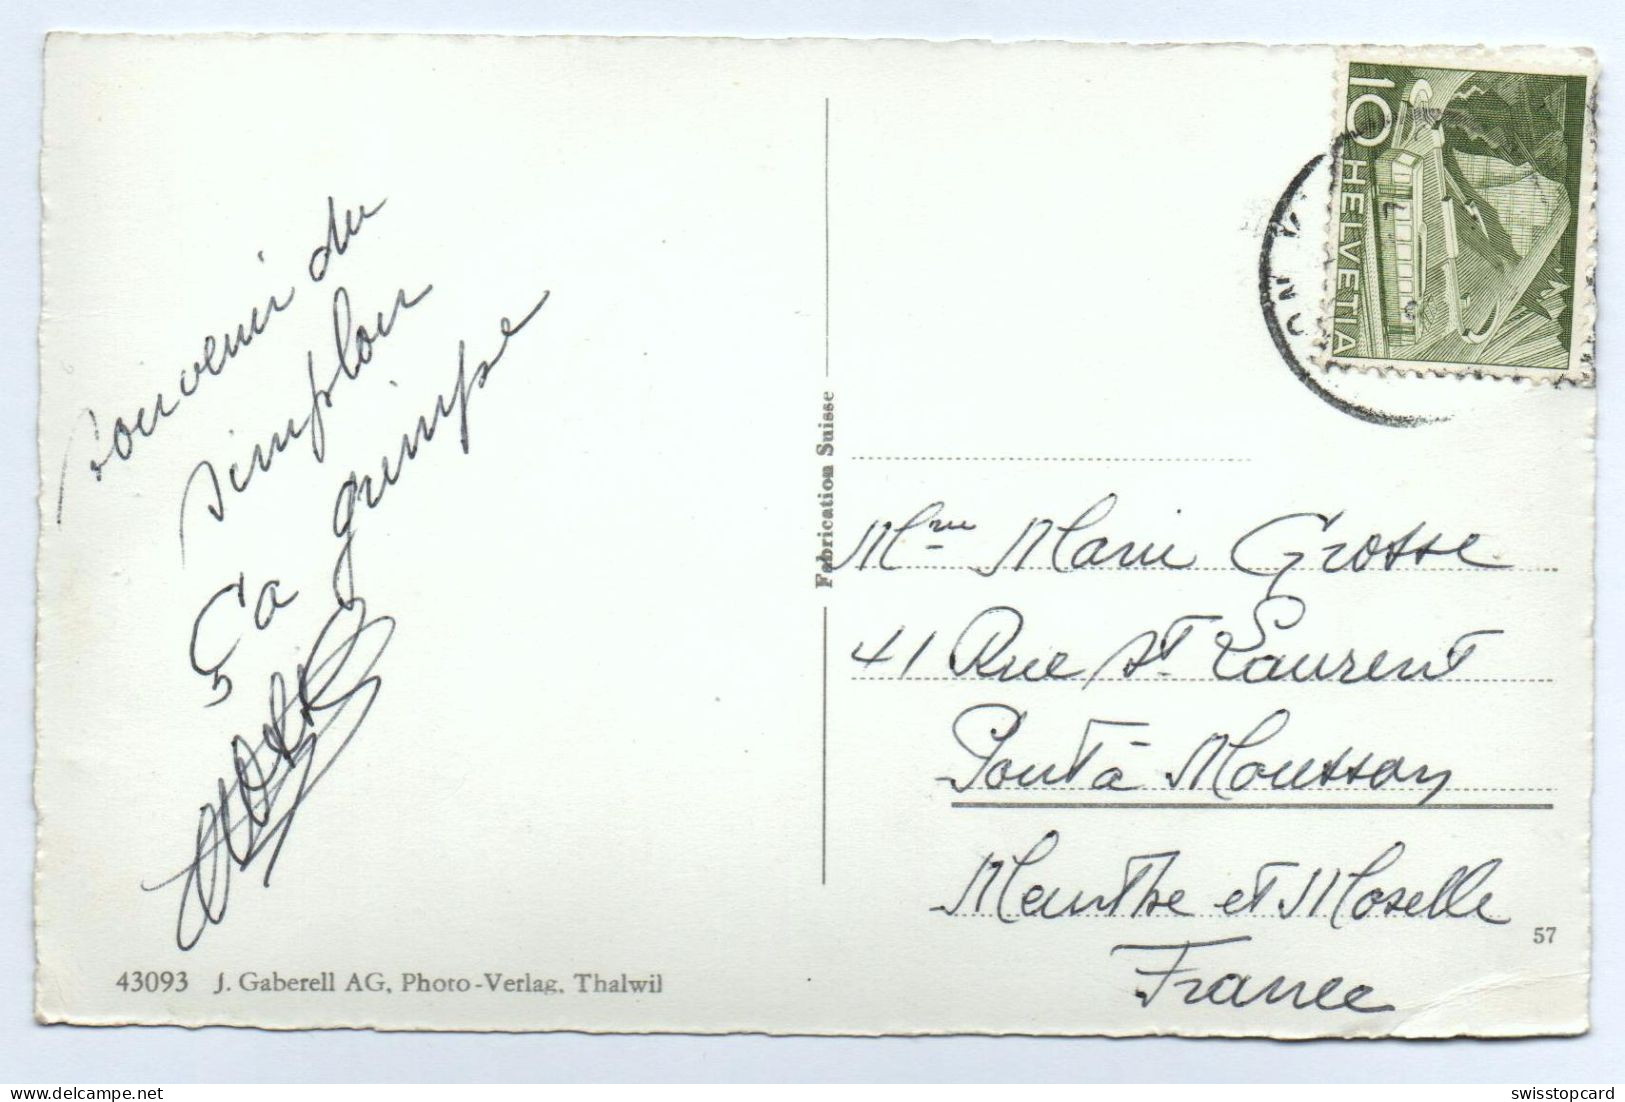 Souvenir du
Simplon
Ça grimpe
43093 J. Gaberell AG, Photo-Verlag, Thalwil
Fabrication Suisse
10 HELVETIA
Mme Marie Grosse
41 Rue St Laurent
Pont à Mousson
Meurthe et Moselle
France
57
swisstopcard